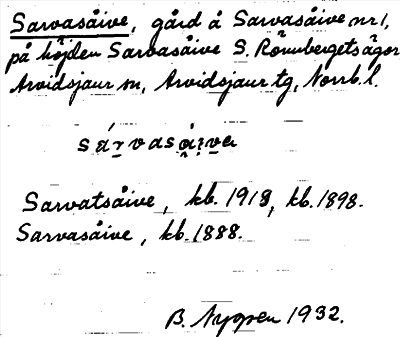 Sarvasåive, gård å Sarvasåive nr 1,
på höjden Sarvasåive S. Rönnbergets ägor,
Arvidsjaur sn, Arvidsjaur tg, Norrb. l.
sárvasåi̯va
Sarvatsåive, kb. 1918, kb. 1898.
Sarvasåive, kb. 1888.
B. Nygren 1932.